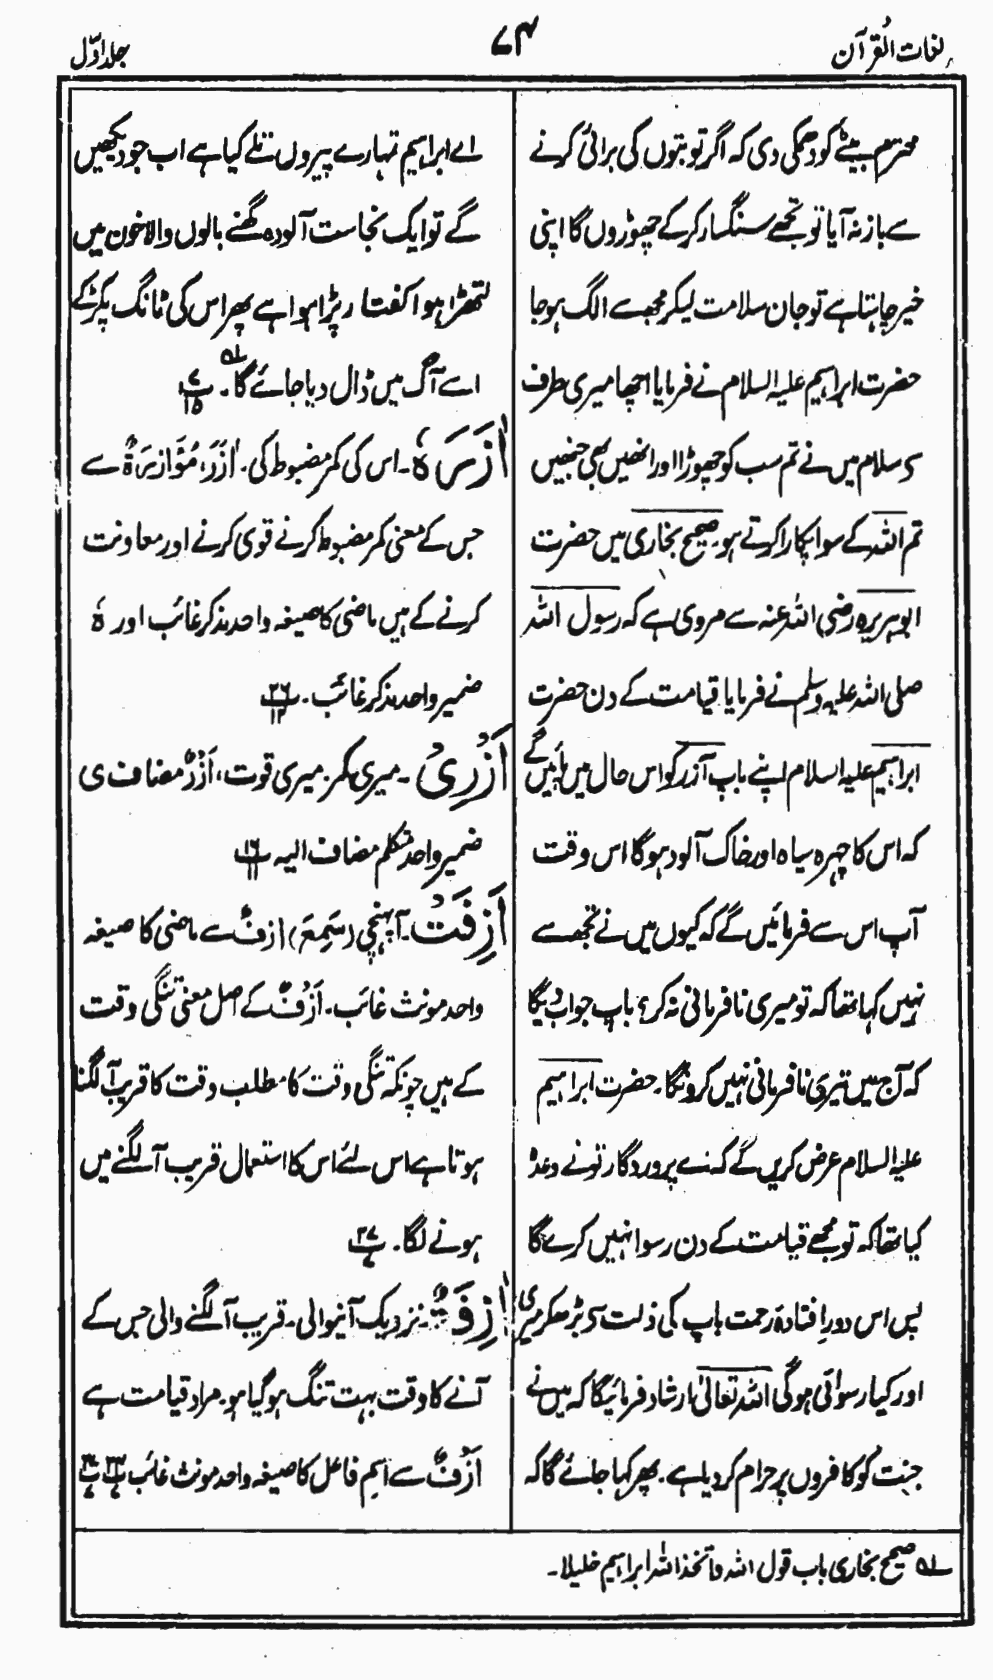 لغات القرآن
۷۴
جلد اوّل
محترم بیٹے کو دھمکی دی کہ اگر تو بتوں کی برائی کرنے
سے باز نہ آیا تو تجھے سنگسار کر کے چھوڑوں گا اپنی
خیر چاہتا ہے تو جان سلامت لیکر مجھ سے الگ ہو جا
حضرت ابراہیم علیہ السلام نے فرمایا اچھا میری طرف
سے سلام میں نے تم سب کو چھوڑا اور انھیں بھی جنھیں
تم اللہ کے سوا پکارا کرتے ہو۔ صحیح بخاری میں حضرت
ابوہریرہ رضی اللہ عنہ سے مروی ہے کہ رسول اللہ
صلی اللہ علیہ وسلم نے فرمایا قیامت کے دن حضرت
ابراہیم علیہ السلام اپنے باپ آزر کو اس حال میں پائیں گے
کہ اس کا چہرہ سیاہ اور خاک آلود ہوگا اس وقت
آپ اس سے فرمائیں گے کہ کیوں میں نے تجھ سے
نہیں کہا تھا کہ تو میری نافرمانی نہ کر؟ باپ جواب دیگا
کہ آج میں تیری نافرمانی نہیں کرونگا۔ حضرت ابراہیم
علیہ السلام عرض کریں گے کہ اے پروردگار تو نے وعدہ
کیا تھا کہ تو مجھے قیامت کے دن رسوا نہیں کرے گا
پس اس دور افتادۂ رحمت باپ کی ذلت سے بڑھکر میری
اور کیا رسوائی ہوگی اللہ تعالیٰ ارشاد فرمائیگا کہ میں نے
جنت کو کافروں پر حرام کر دیا ہے۔ پھر کہا جائے گا کہ
اے ابراہیم تمہارے پیروں تلے کیا ہے اب جو دیکھیں
گے تو ایک نجاست آلودہ گھنے بالوں والا خون میں
لتھڑا ہوا کفتار پڑا ہوا ہے پھر اس کی ٹانگ پکڑ کے
اسے آگ میں ڈال دیا جائے گا ؎۱۔
اٰزَرَہٗ۔ اس کی کمر مضبوط کی۔ اٰزَرَ، مُؤَازَرَۃٌ سے
جس کے معنی کمر مضبوط کرنے قوی کرنے اور معاونت
کرنے کے ہیں ماضی کا صیغہ واحد مذکر غائب اور ہٗ
ضمیر واحد مذکر غائب۔ ۲۶ ۱۲
اَزْرِیْ۔ میری کمر۔ میری قوت، اَزْرٌ مضاف ی
ضمیر واحد متکلم مضاف الیہ ۱۶ ۱۱
اَزِفَتْ۔ آپہنچی (سَمِعَ) ازفٌ سے ماضی کا صیغہ
واحد مونث غائب۔ اَزْفٌ کے اصل معنی تنگی وقت
کے ہیں چونکہ تنگی وقت کا مطلب وقت کا قریب آلگنا
ہوتا ہے اس لئے اس کا استعمال قریب آ لگنے میں
ہونے لگا۔ ۲۷ ۷
اٰزِفَۃٌ۔ نزدیک آنیوالی۔ قریب آلگنے والی جس کے
آنے کا وقت بہت تنگ ہو گیا ہو۔ مراد قیامت ہے
اَزْفٌ سے اسم فاعل کا صیغہ واحد مونث غائب
؎۱ صحیح بخاری باب قول اللہ واتخذ اللہ ابراہیم خلیلا۔